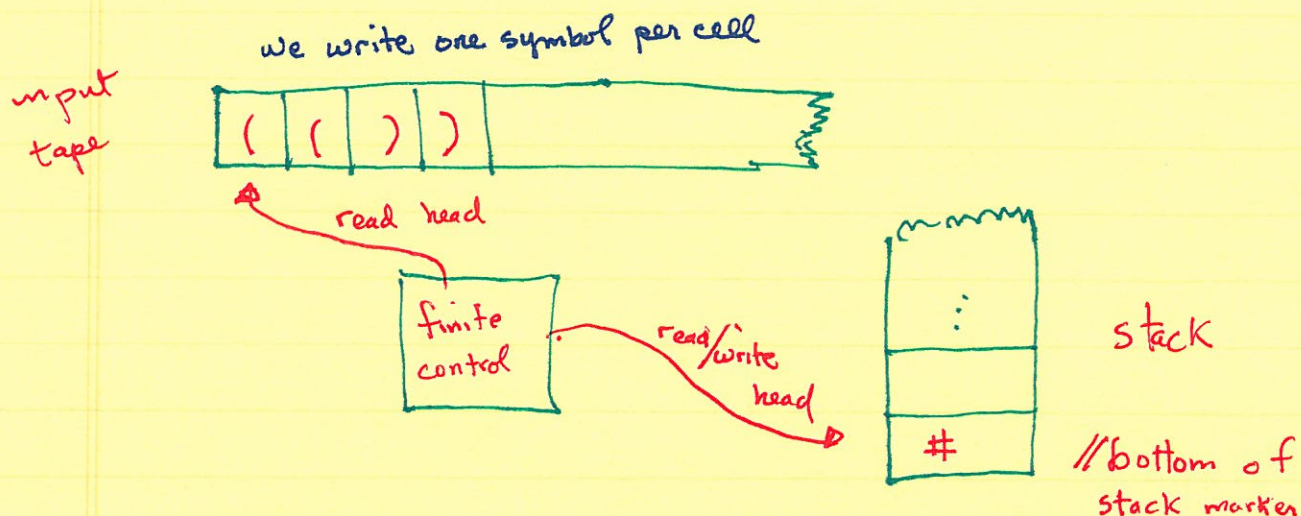 we write one symbol per cell
input
tape
( ( ) )
read head
finite
control
read/write
head
⋮
stack
#
//bottom of
stack marker